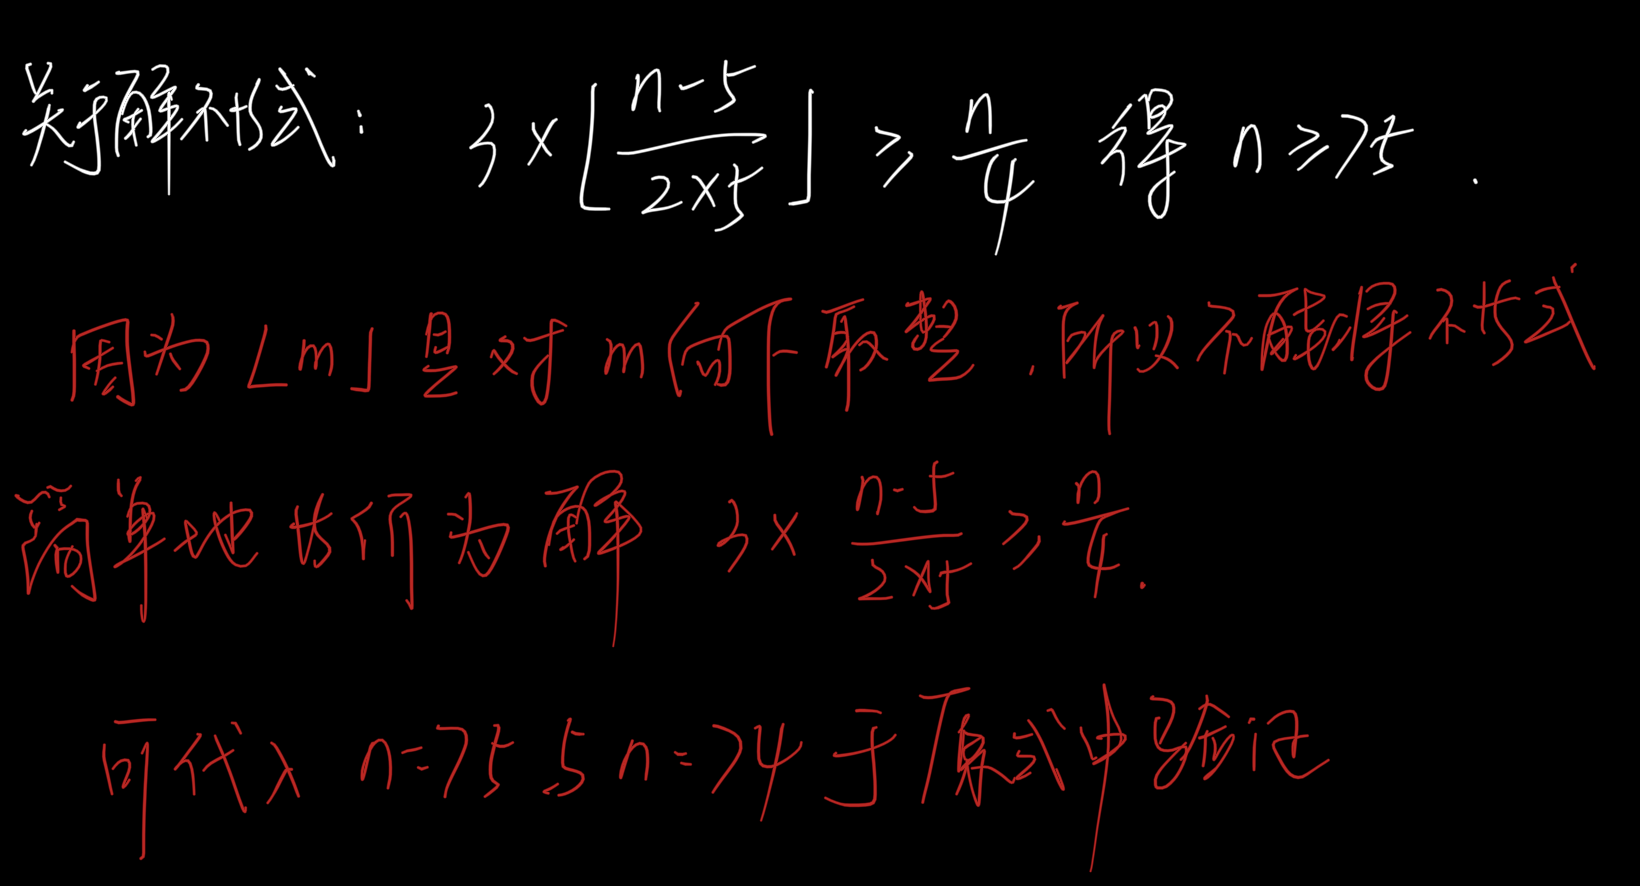 关于解不等式： 3×⌊(n-5)/(2×5)⌋ ≥ n/4 得 n≥75 .
因为⌊m⌋是对m向下取整，所以不能将不等式
简单地等价为解 3× (n-5)/(2×5) ≥ n/4 .
可代入 n=75 与 n=74 于原式中验证